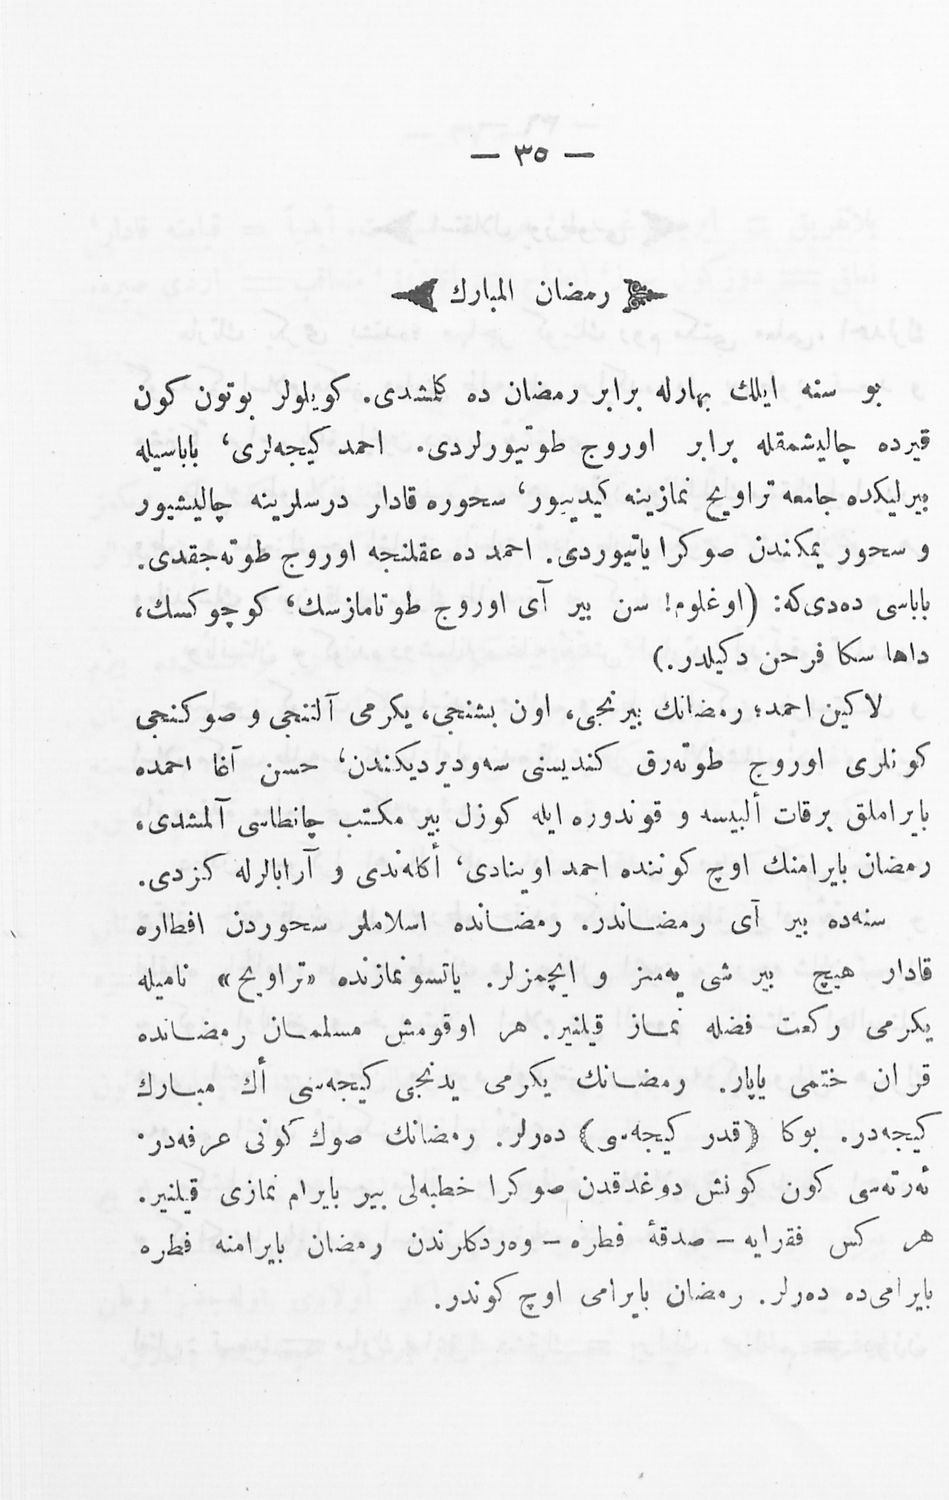 — ٣٥ —
رمضان المبارك
بو سنه ایللك بهارله برابر رمضان ده كلمشدی. كویلولر بوتون كون
قیرده چالیشمقله برابر اوروج طوتیورلردی. احمد كیجه‌لری، باباسیله
بیرلیكده جامعه تراویح نمازینه كیدییور، سحوره قادار درسلرینه چالیشیور
و سحور یمكندن صوكرا یاتیوردی. احمد ده عقلنجه اوروج طوته‌جقدی.
باباسی ده‌دی‌كه: (اوغلوم! سن بیر آی اوروج طوتامازسك، كوچوكسك،
داها سكا فرض دكیلدر.)
لاكین احمد؛ رمضانك بیرنجی، اون بشنجی، یكرمی آلتنجی و صوكنجی
كونلری اوروج طوته‌رق كندیسنی سه‌ودیردیكندن، حسن آغا احمده
بایراملق برقات ألبیسه و قوندوره ایله كوزل بیر مكتب چانطاسی آلمشدی،
رمضان بایرامنك اوچ كوننده احمد اوینادی، أكله‌ندی و آرابالرله كزدی.
سنه‌ده بیر آی رمضاندر. رمضانده اسلاملر سحوردن افطاره
قادار هیچ بیر شی یه‌مز و ایچمزلر. یاتسونمازنده «تراویح» نامیله
یكرمی ركعت فضله نماز قیلنیر. هر اوقومش مسلمان رمضانده
قران ختمی یاپار. رمضانك یكرمی یدنجی كیجه‌سی أك مبارك
كیجه‌در. بوكا (قدر كیجه‌سی) ده‌رلر. رمضانك صوك كونی عرفه‌در.
ئه‌رته‌سی كون كونش دوغدقدن صوكرا خطبه‌لی بیر بایرام نمازی قیلنیر.
هر كس فقرایه – صدقهٔ فطره – وه‌ردكلرندن رمضان بایرامنه فطره
بایرامی‌ده ده‌رلر. رمضان بایرامی اوچ كوندر.